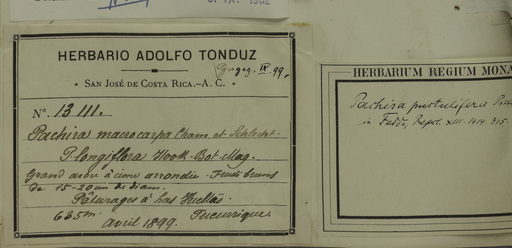 6. IX. 1982
HERBARIO ADOLFO TONDUZ
Greg. IX. 99.
SAN JOSÉ DE COSTA RICA.-A. C.
No. 13 111.
Pachira macrocarpa Cham et Schlecht.
P. longiflora Hook. Bot. Mag.
Grand arbre à cime arrondie. Fruits bruns
de 15-20 cm de diam.
Pâturages à Las Vueltas.
635m. Tucurrique
Avril 1899.
HERBARIUM REGIUM MONA
Pachira pustulifera Pitt
in Fedde, Rept. XIII. 1914. 315.